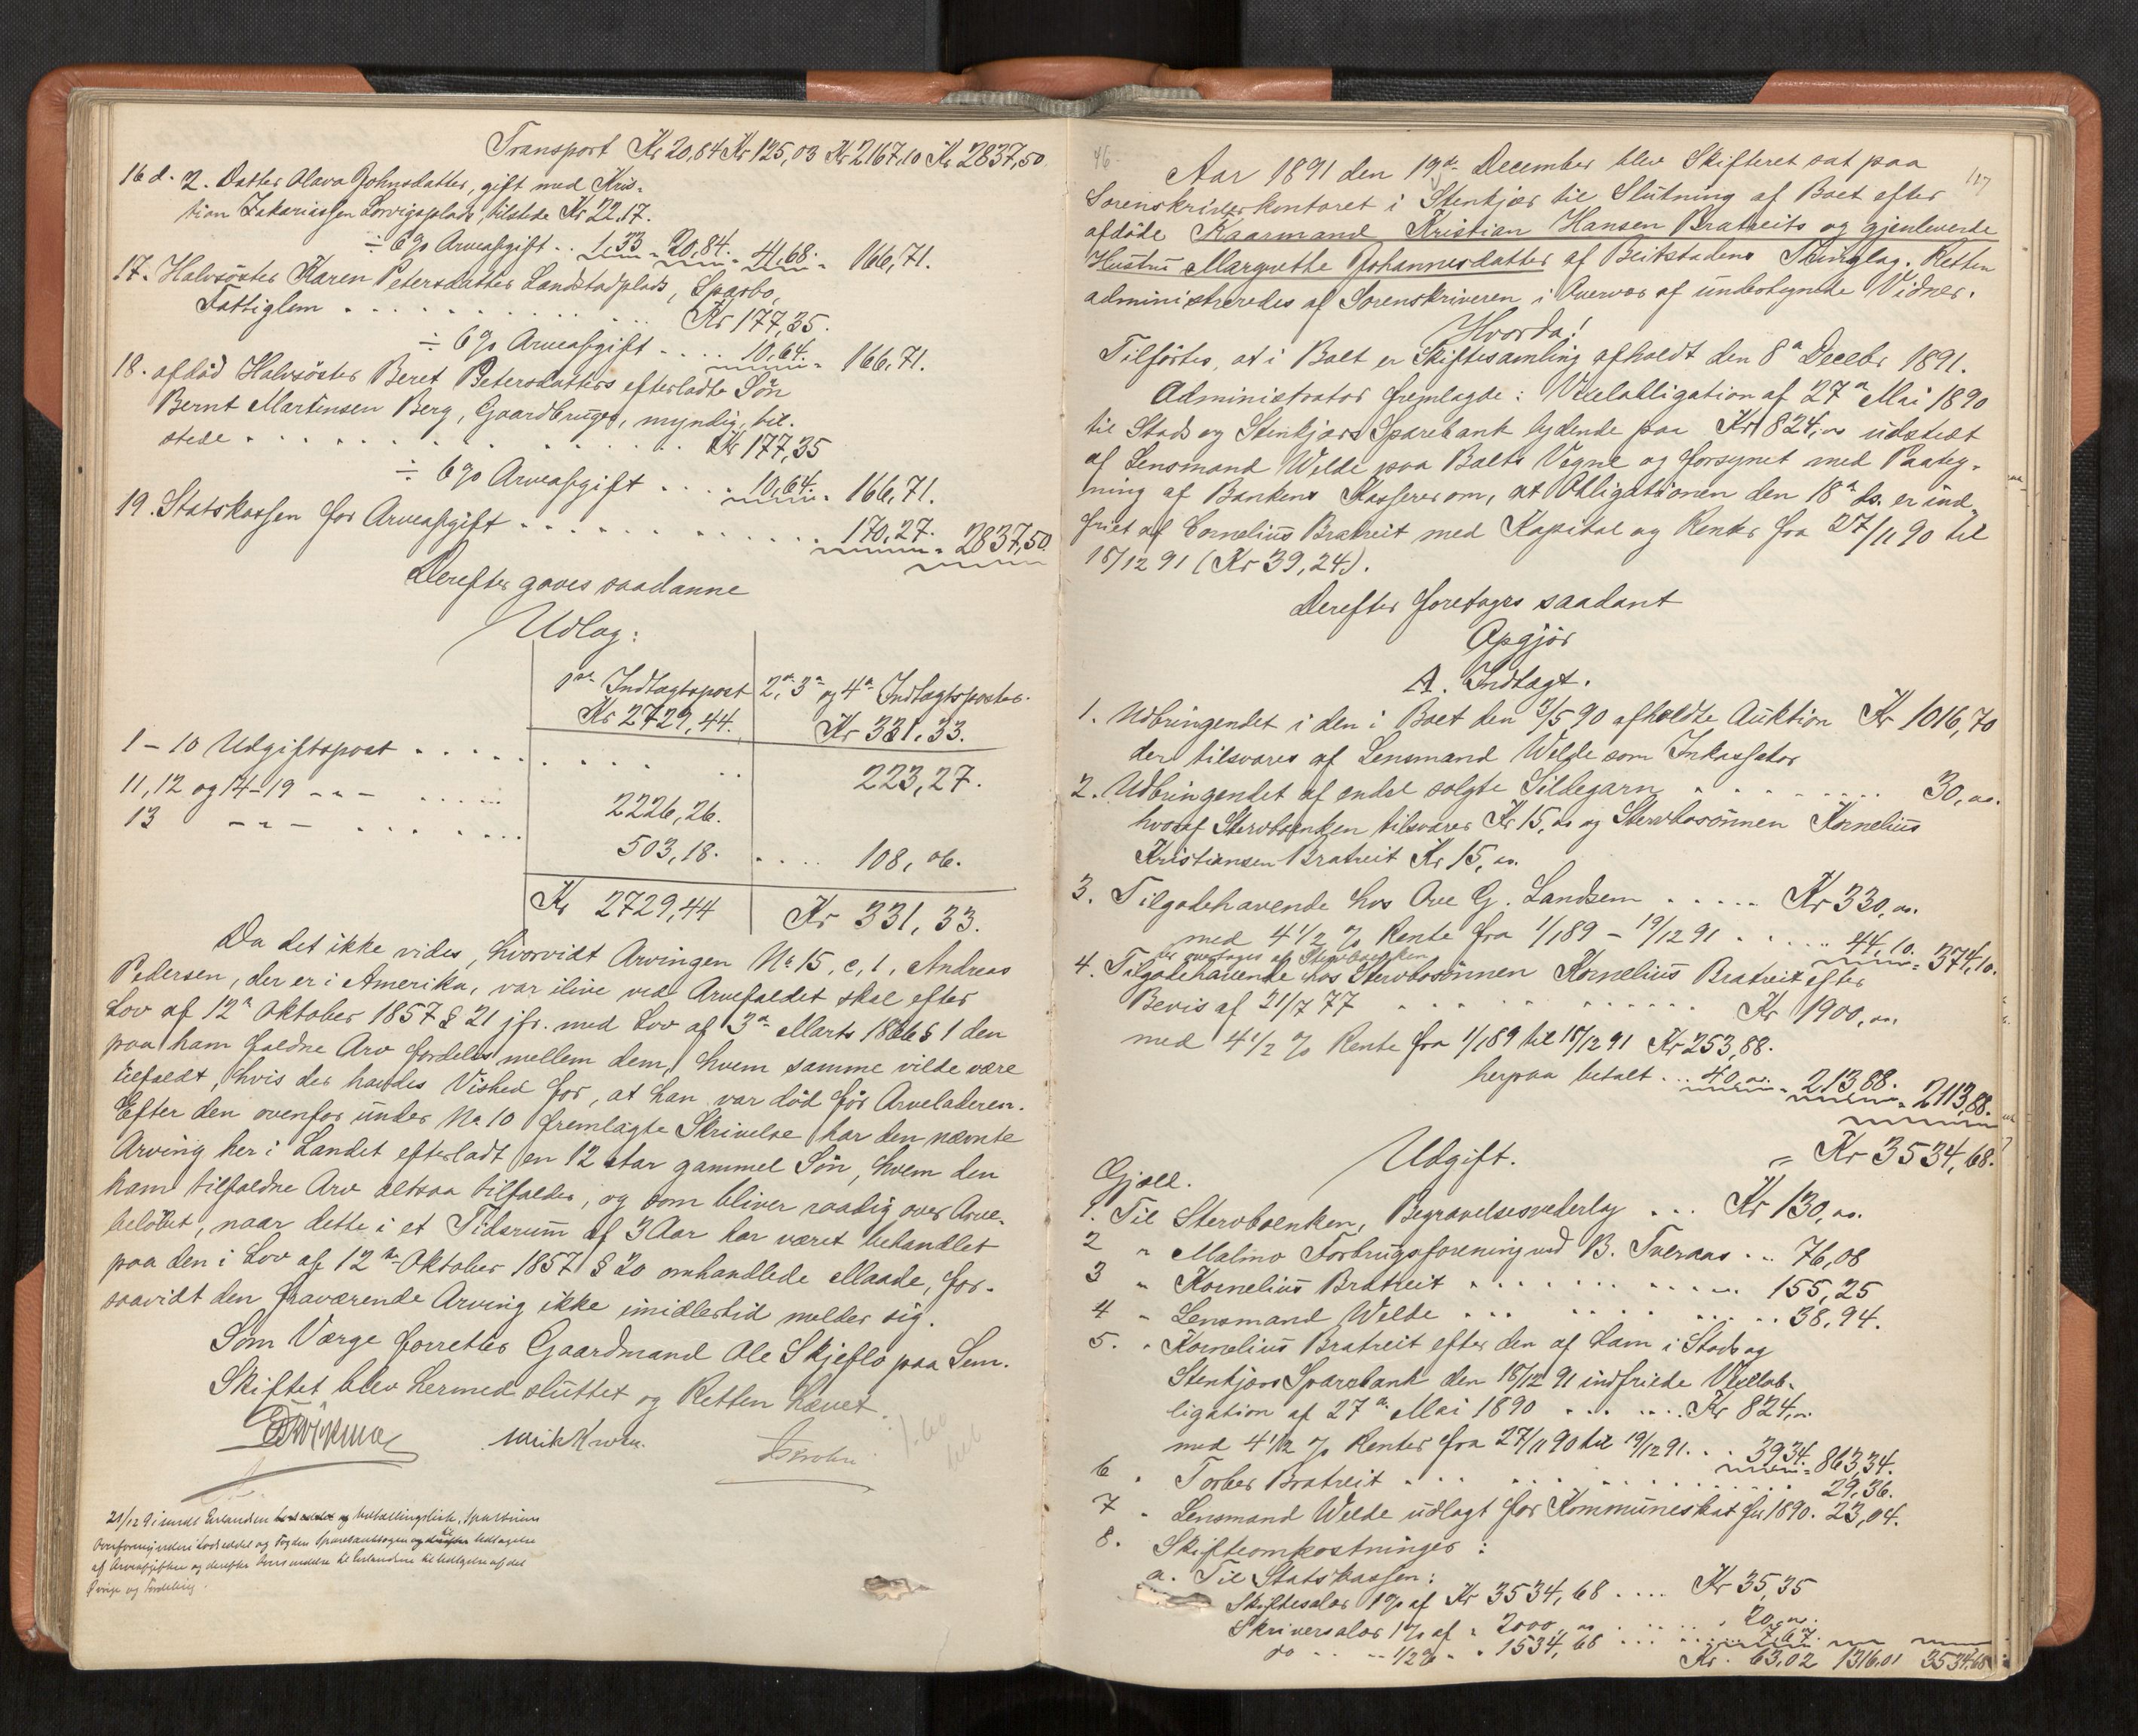 Transport Kr 20,84 Kr 125,03 Kr 2167,10 Kr 2837,50
16 d. 2. Datter Olava Johnsdatter, gift med Kris-
tian Zakariassen Lorvigsplads, tilstede Kr 22.17.
÷ 6 % Arveafgift .. 1,33 = 20,84. = 41,68. = 166,71.
17. Halvsöster Karen Petersdatter Landstadplads, Sparbo,
Fattiglem . . . . Kr 177,35.
÷ 6 % Arveafgift .... 10,64. = 166,71.
18. afdöd Halvsöster Beret Petersdatters efterladte Sön
Bernt Martinsen Berg, Gaardbruger, myndig, til-
stede . . . . Kr 177,35
÷ 6 % Arveafgift .... 10,64. = 166,71.
19. Statskassen for Arveafgift . . . . 170,27. = 2837,50
Derefter gaves saadanne
Udlæg:
1ste Indtægtspost 2den, 3die og 4de Indtægtsposter.
Kr 2729,44. Kr 331,33.
1-10 Udgiftspost . . . . 223,27.
11, 12 og 14-19 - " - . . . . 2226,26.
13 - " - . . . . 503,18. .... 108,06.
Kr 2729,44 Kr 331,33.
Da det ikke vides, hvorvidt Arvingen No 15, c, 1, Andreas
Pedersen, der er i Amerika, var ilive ved Arvefaldet skal efter
Lov af 12te Oktober 1857 § 21 jfr. med Lov af 3die Marts 1866 § 1 den
paa ham faldne Arv fordeles mellem dem, hvem samme vilde være
tilfaldt, hvis der havdes Vished for, at han var död för Arveladeren.
Efter den ovenfor under No 10 fremlagte Skrivelse har den nævnte
Arving her i Landet efterladt en 12 Aar gammel Sön, hvem den
ham tilfaldne Arv altsaa tilfalder, og som bliver raadig over Arve-
belöbet, naar dette i et Tidsrum af 3 Aar har været behandlet
paa den i Lov af 12te Oktober 1857 § 20 omhandlede Maade, for-
saavidt den fraværende Arving ikke imidlertid melder sig.
Som Værge forretter Gaardmand Ole Skjeflo paa Lem.
Skiftet blev hermed sluttet og Retten hævet.
21/12 91 sendt
Overformynderi Lodseddel og
af Arveafgiften og derefter
Övrige og Fordeling.
46. 117
Aar 1891 den 19de December blev Skifteret sat paa
Sorenskriverkontoret i Stenkjær til Slutning af Boet efter
afdöde Kaarmand Kristian Hansen Bratreits og gjenlevende
Hustru Margrethe Johannesdatter af Beitstadens Thinglag. Retten
administreredes af Sorenskriveren i Overvær af undertegnede Vidner.
Hvorda!
Tilförtes, at i Boet er Skiftesamling afholdt den 8de Decebr 1891.
Administrator fremlagde: Vexelobligation af 27de Mai 1890
til Stods og Stenkjærs Sparebank lydende paa Kr 824,00 udstedt
af Lensmand Welde paa Boets Vegne og forsynet med Paateg-
ning af Bankens Kasserer om, at Obligationen den 18de ds. er ind-
friet af Cornelius Bratreit med Kapital og Renter fra 27/11 90 til
18/12 91 (Kr 39,24).
Derefter foretages saadant
Opgjör
A. Indtægt.
1. Udbringendet i den i Boet den 3/5 90 afholdte Auktion Kr 1016,70
der tilsvares af Lensmand Welde som Inkassator
2. Udbringendet af endel solgte Sildegarn . . . . 30,00.
hvoraf Stervboenken tilsvarer Kr 15,00 og Stervbosönnen Kornelius
Kristiansen Bratreit Kr 15,00.
3. Tilgodehavende hos Ove G. Landsem ..... Kr 330,00.
med 4 1/2 % Rente fra 1/1 89 - 19/12 91 . . . . 44,10. = 374,10.
der overtages af Stervboenken
4. Tilgodehavende hos Stervbosönnen Kornelius Bratreit efter
Bevis af 21/7 77 . . . . Kr 1900,00.
med 4 1/2 % Rente fra 1/1 89 til 18/12 91 Kr 253,88.
herpaa betalt ... 40,00. = 213,88. = 2113,88.
= Kr 3534,68.
Udgift.
Gjæld.
1. Til Stervboenken, Begravelsesvederlag ... Kr 130,00.
2 " Malmo Forbrugsforening ved B. Tveraas ... 76,08
3 " Kornelius Bratreit . . . . 155,25
4 " Lensmand Welde . . . . 38,94.
5. " Kornelius Bratreit efter den af ham i Stods og
Stenkjærs Sparebank den 18/12 91 indfriede Vexelob-
ligation af 27de Mai 1890 . . . . Kr 824,00
med 4 1/2 % Renter fra 27/11 90 til 19/12 91. .. 39,34. = 863,34.
6 " Torber Bratreit . . . . 29,36.
7 " Lensmand Welde udlagt for Kommuneskat for 1890. 23,04.
8. Skifteomkostninger:
a. Til Statskassen:
Skiftesalær 1 % af Kr 3534,68 .... Kr 35,35
Skriversalær 1 % af " 2000,00 . . . . 20,00.
do .. -- 1/2 % " " 1534,68 . . . . 7,67.
Kr. 63,02 1316,01 3534,68